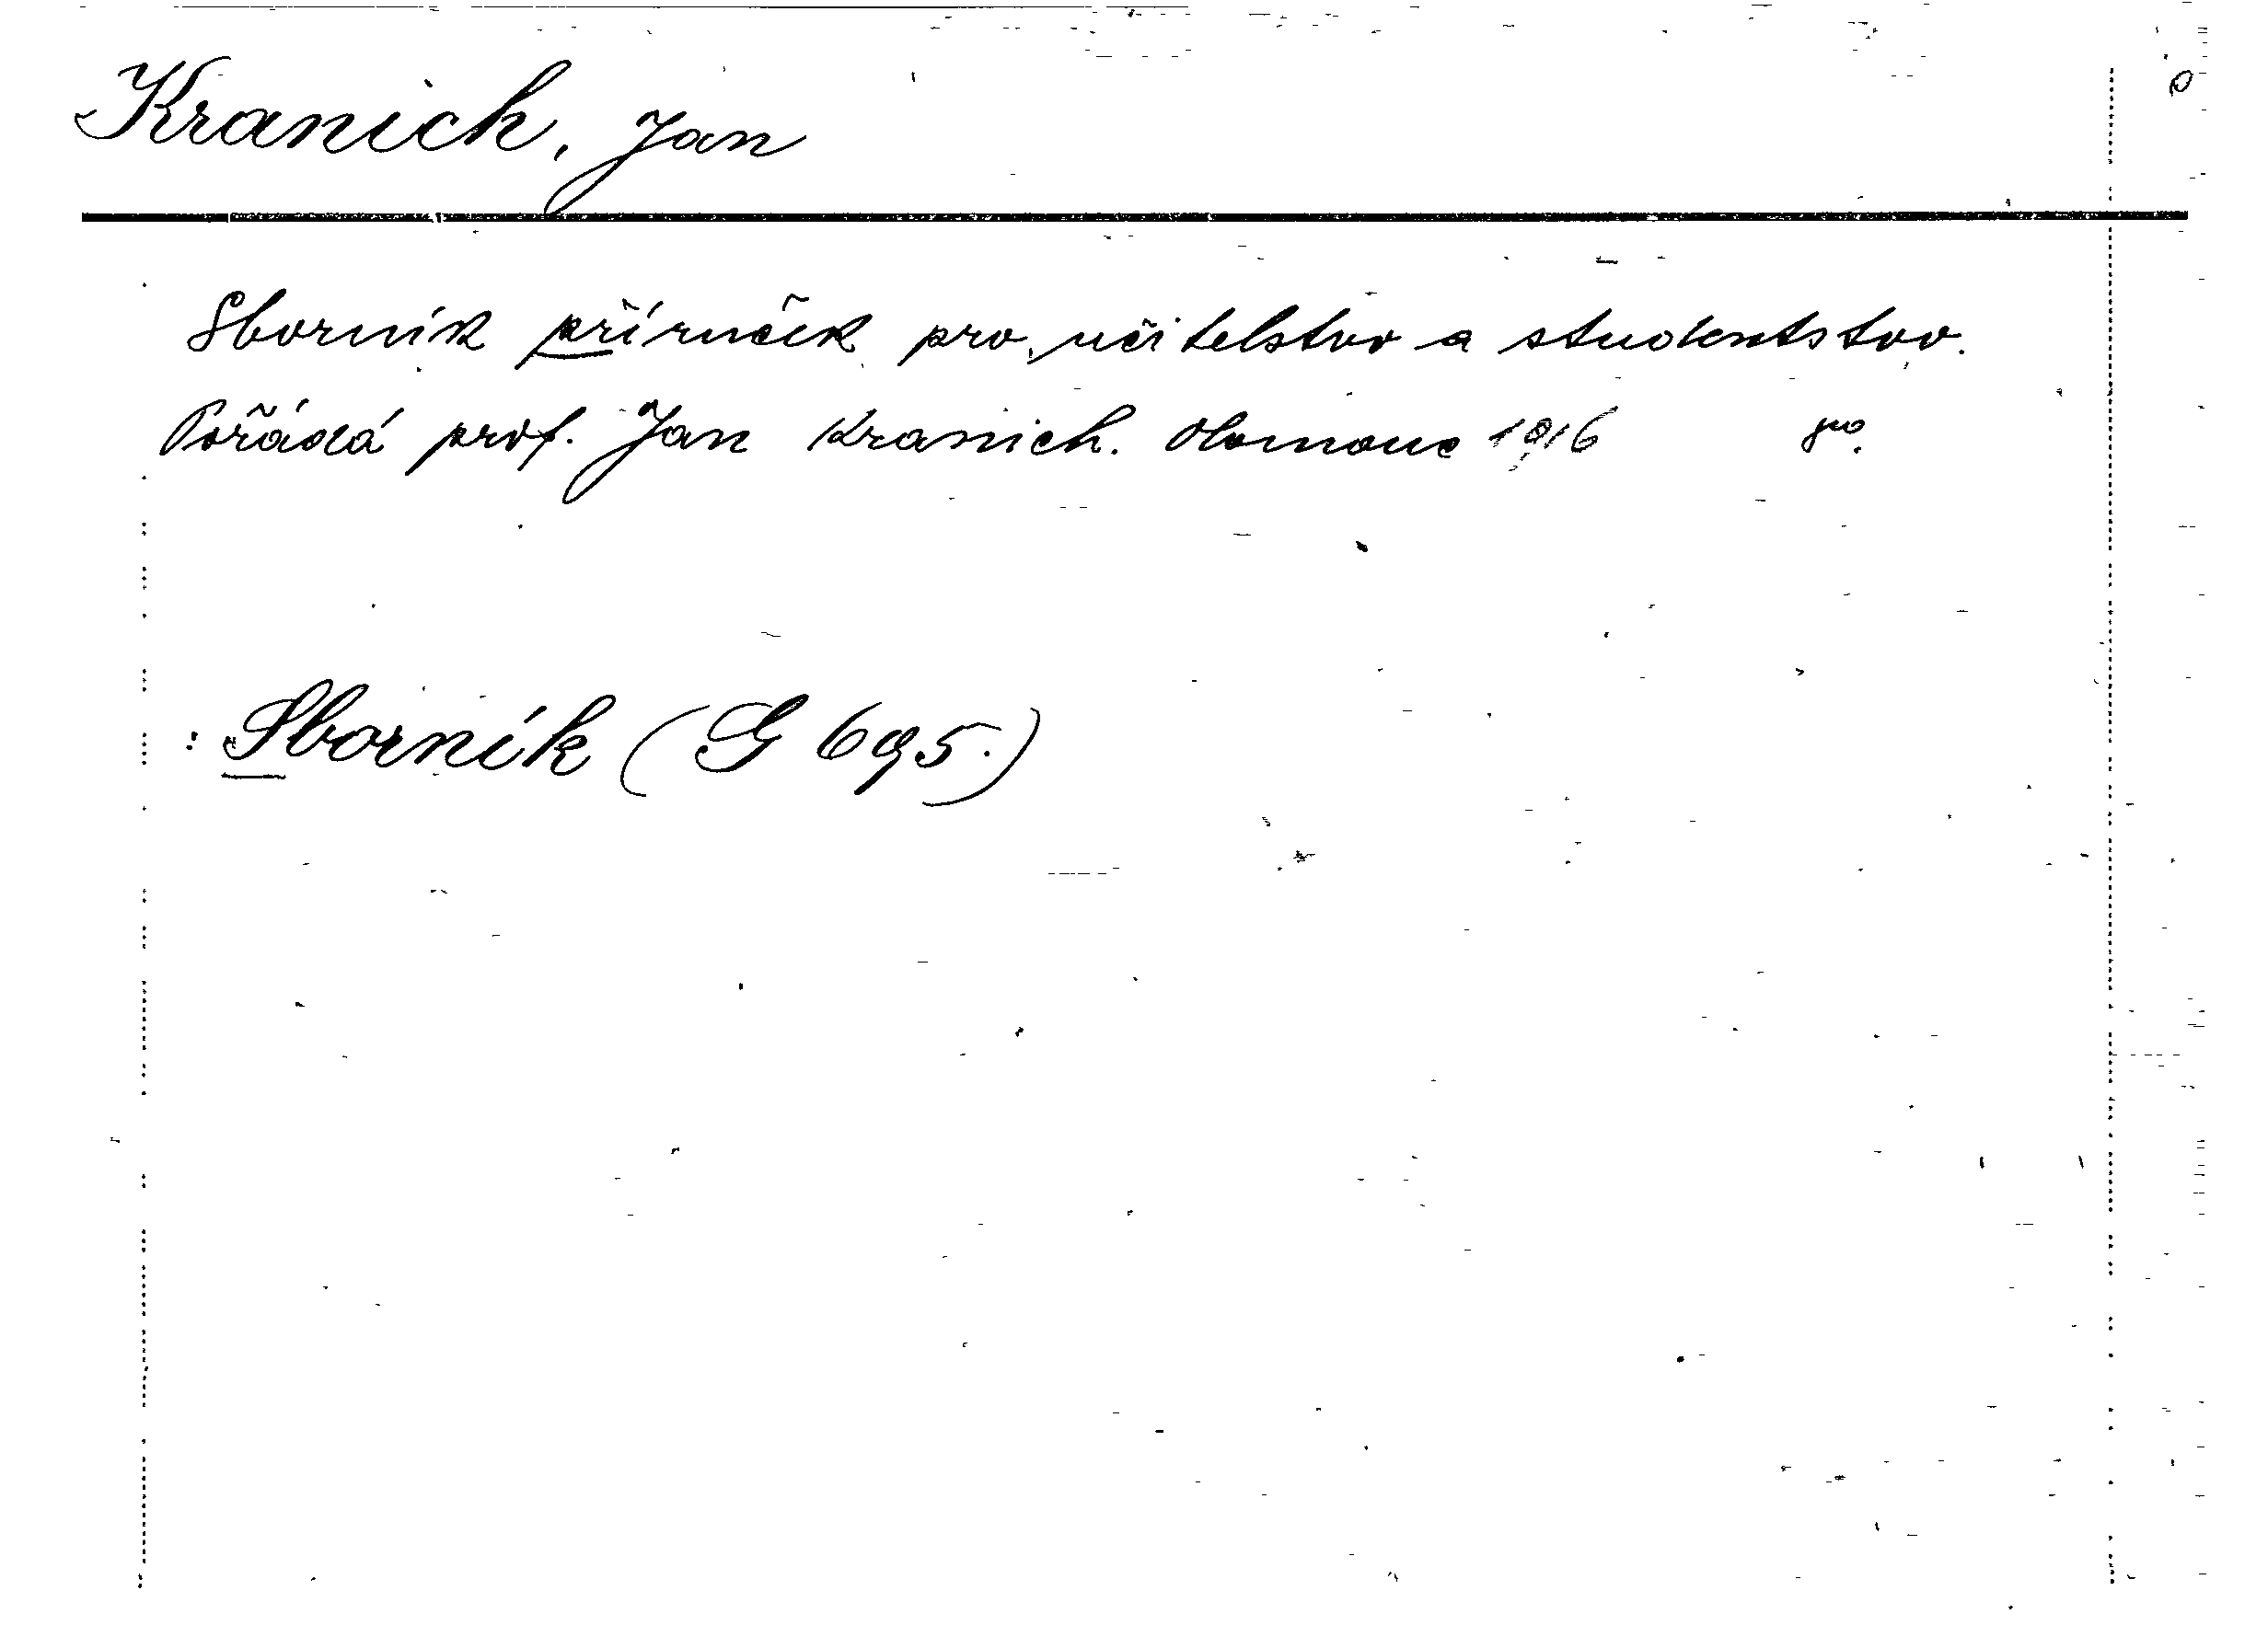 Kranich, Jan
Sborník příruček pro učitelstvo a studentstvo.
Pořádá prof. Jan Kranich. Olomouc 1916 8º.
: Sborník (G 695.)